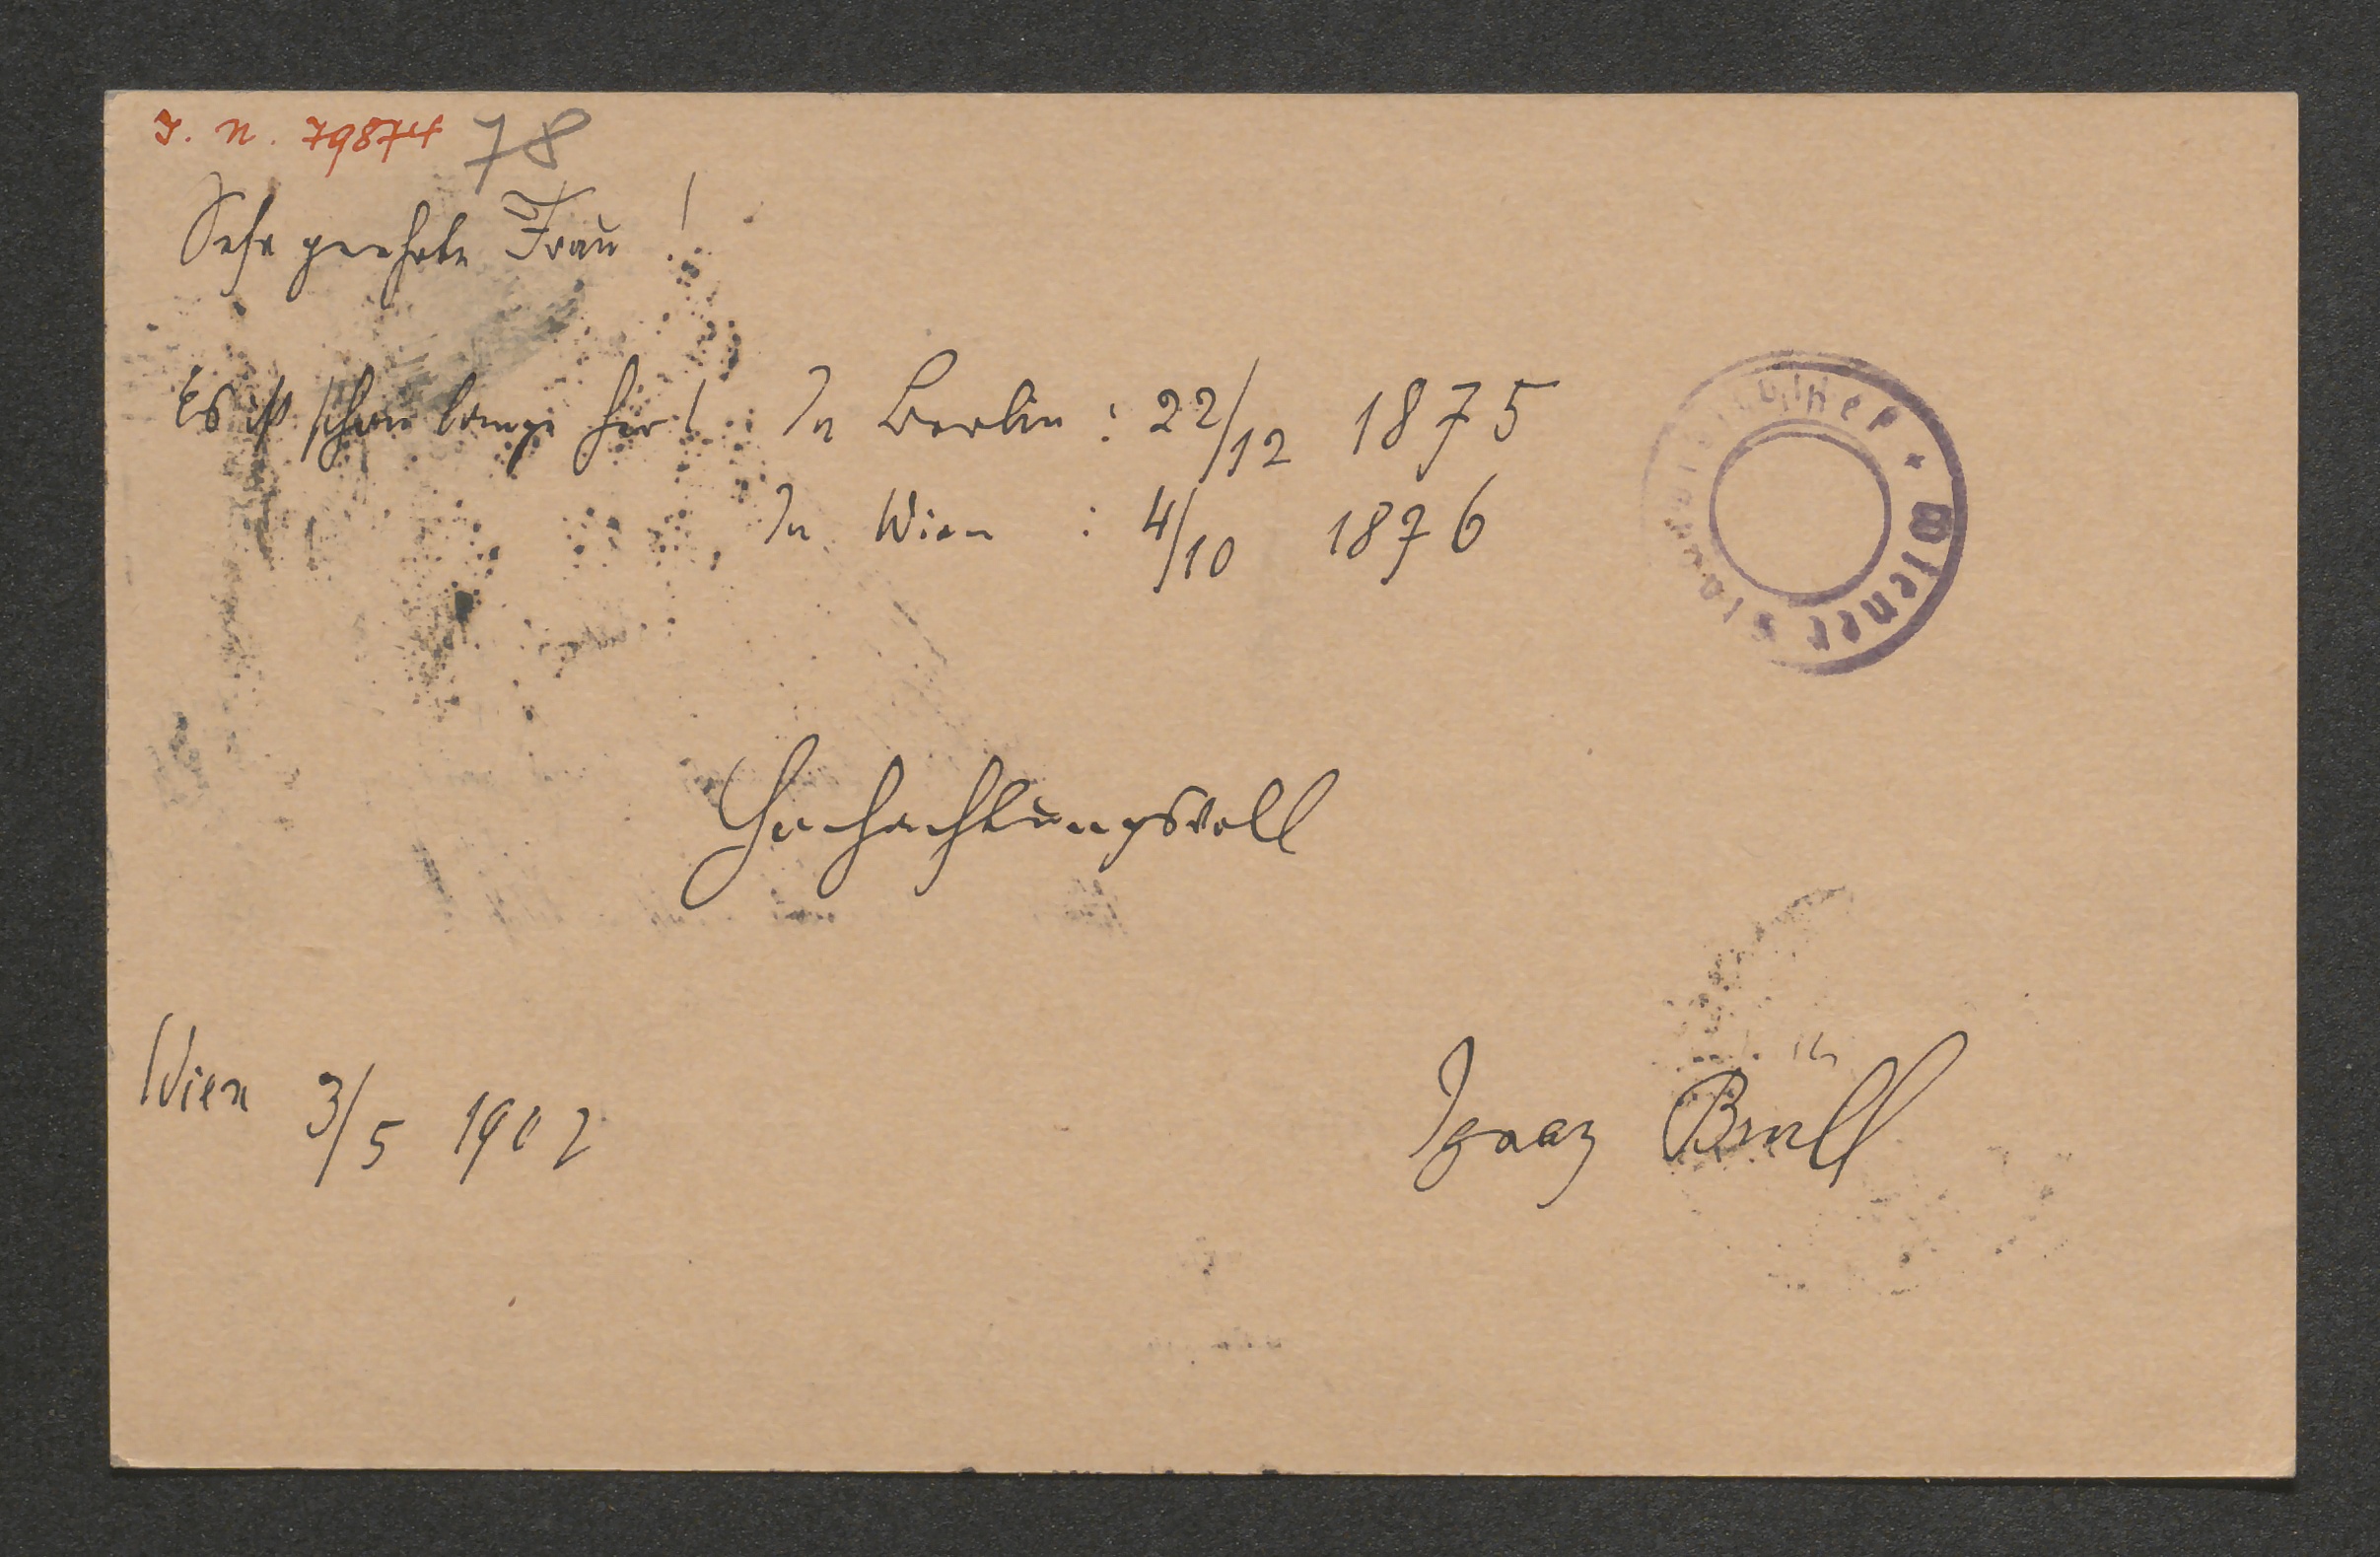 I. N. 79874 78
Sehr geehrte Frau!
Es ist schon lange her! In Berlin: 22/12 1875
In Wien: 4/10 1876
Hochachtungsvoll
Wien 3/5 1902
Ignaz Brüll
Wiener Stadtbibliothek